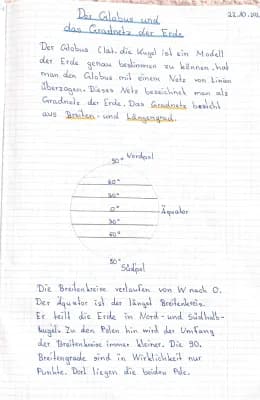 Der Globus und
das Gradnetz der Erde
22.10.202
Der Globus (lat. die Kugel ist ein Modell
der Erde genau bestimmen zu können, hat
man den Globus mit einem Netz von Linien
überzogen. Dieses Netz bezeichnet man als
Gradnetz der Erde. Das Gradnetz besteht
aus Breiten- und Längengrad.
90° Nordpol
60°
30°
0° Äquator
30°
60°
90°
Südpol
Die Breitenkreise verlaufen von W nach O.
Der Äquator ist der längst Breitenkreis.
Er teilt die Erde in Nord- und Südhalb-
kugel. Zu den Polen hin wird der Umfang
der Breitenkreise immer kleiner. Die 90.
Breitengrade sind in Wirklichkeit nur
Punkte. Dort liegen die beiden Pole.